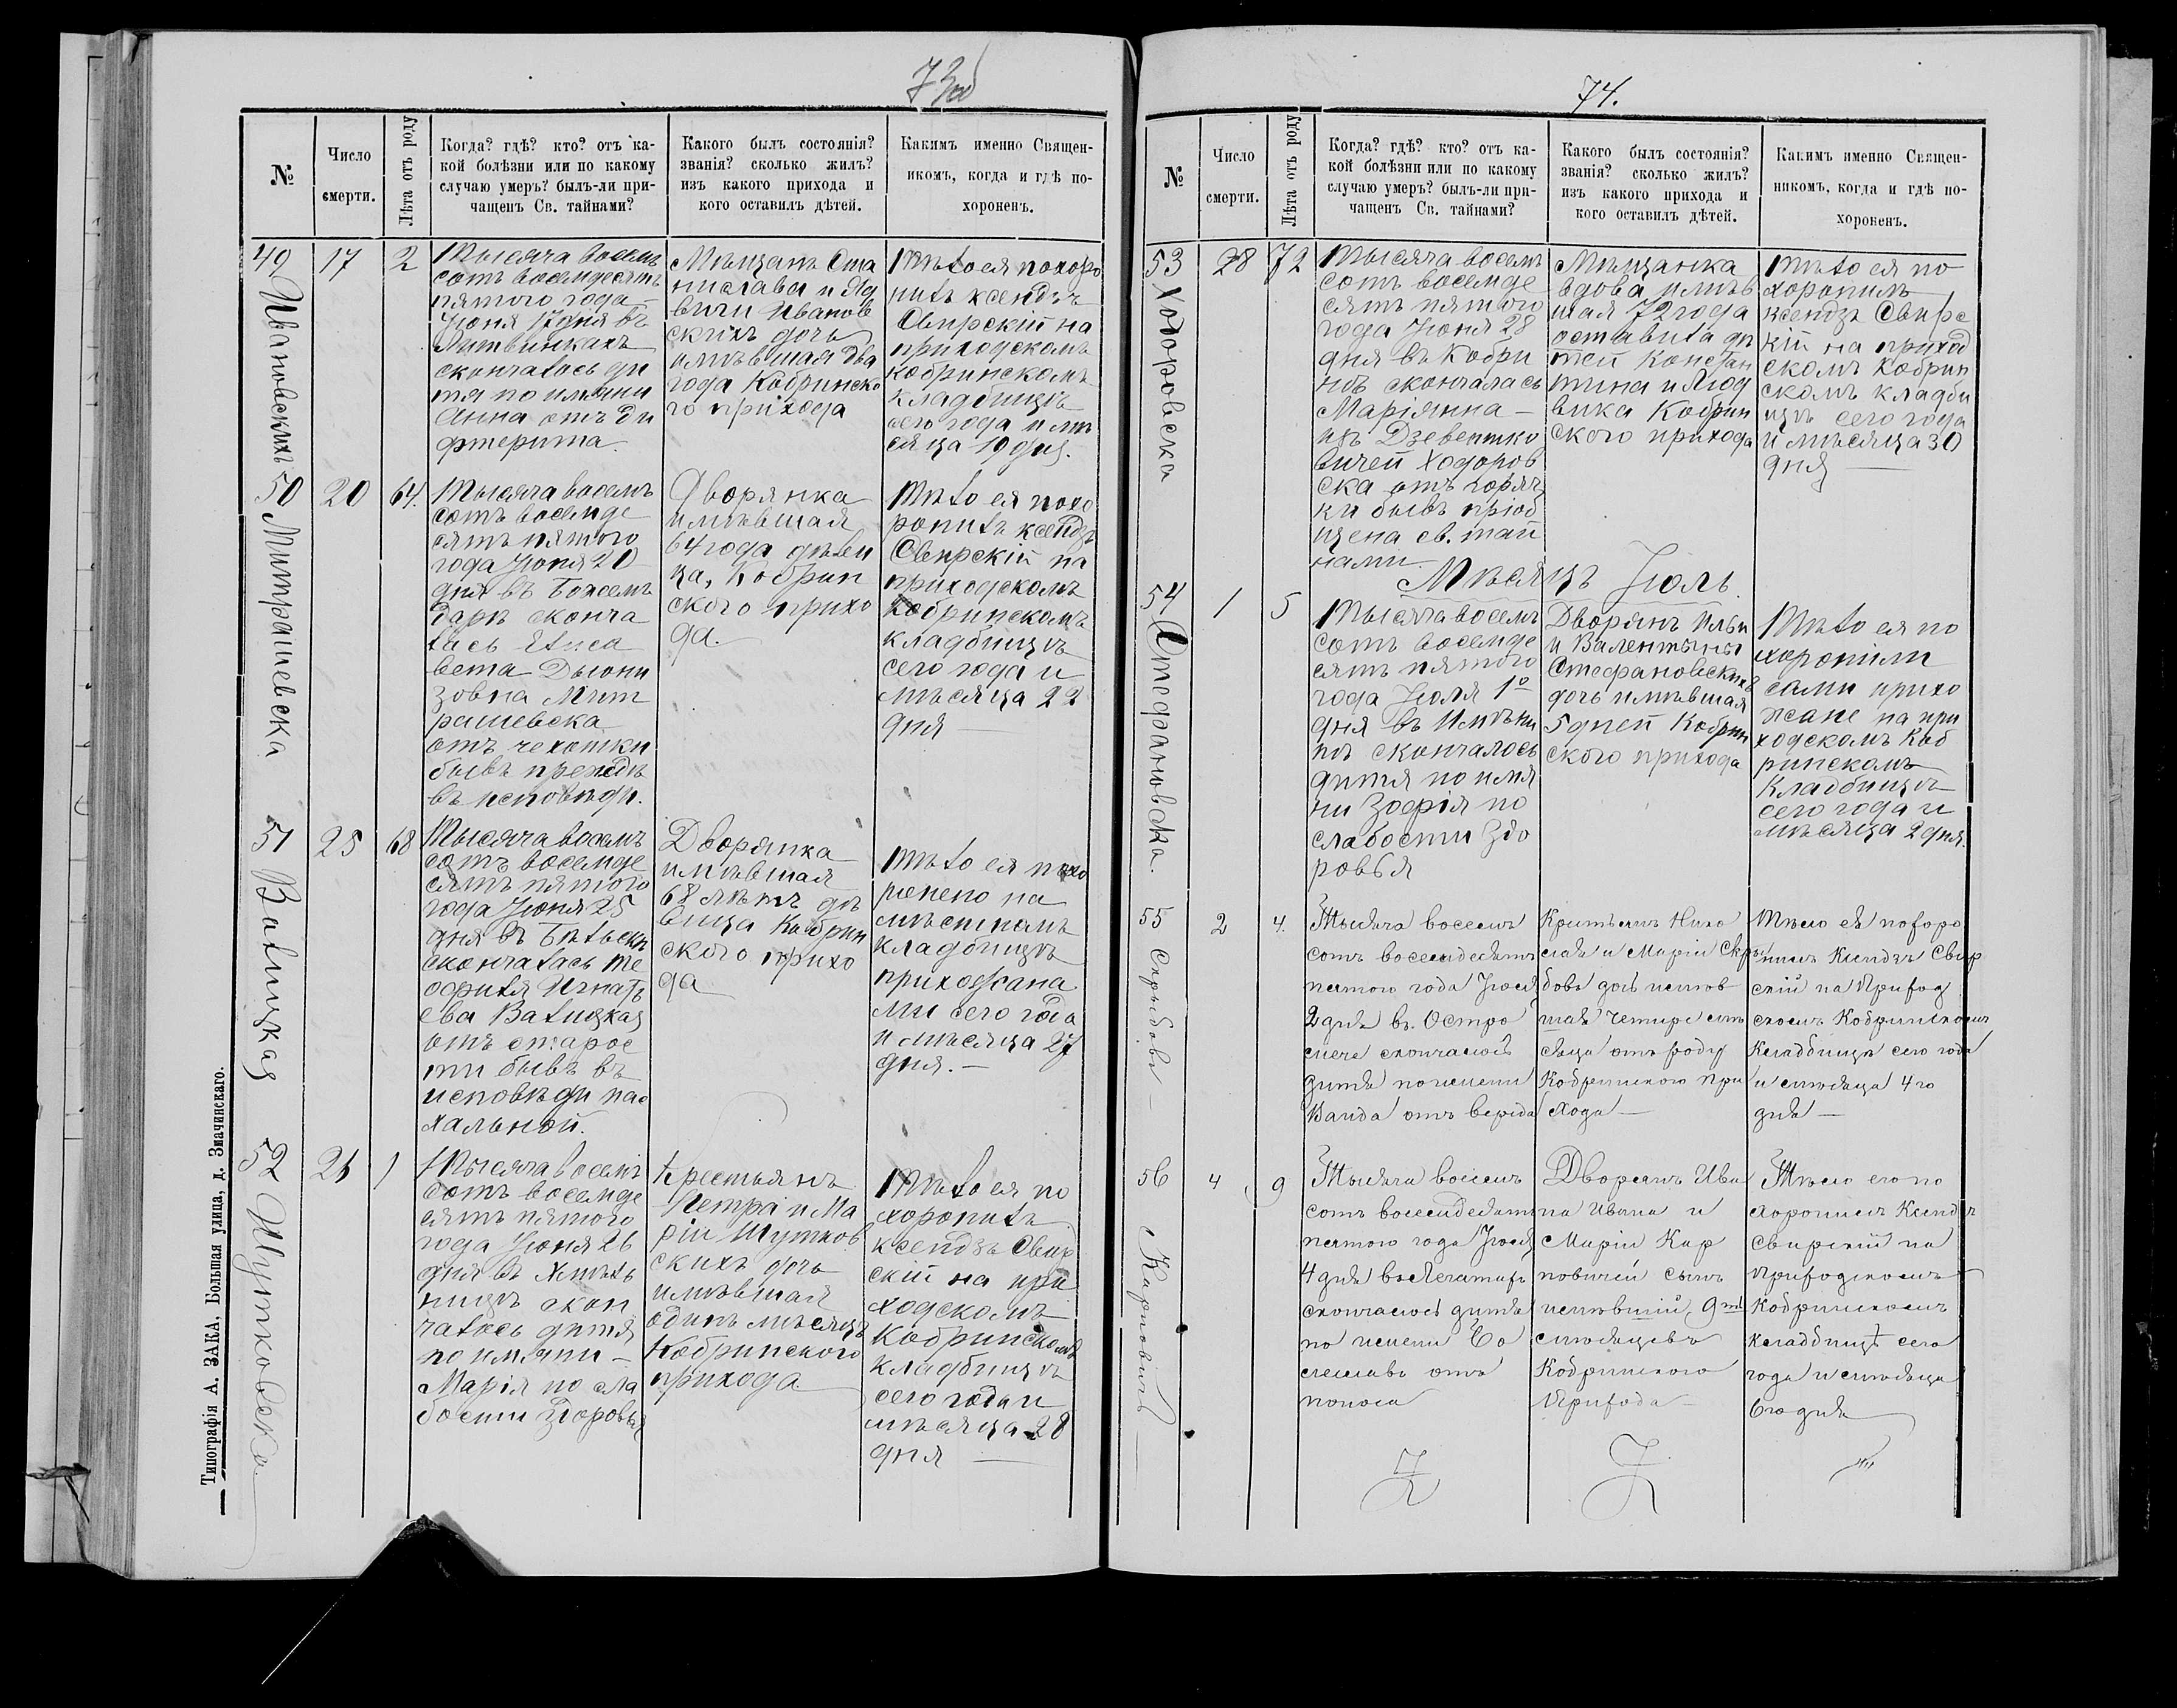 73об
№
Число
смерти.
Лѣта отъ роду
Когда? гдѣ? кто? отъ ка-
кой болѣзни или по какому
случаю умеръ? былъ-ли при-
чащенъ Св. тайнами?
Какого былъ состоянія?
званія? сколько жилъ?
изъ какого прихода и
кого оставилъ дѣтей.
Какимъ именно Священ-
никомъ, когда и гдѣ по-
хороненъ.
49
Ивановскихъ
17
2
Тысяча восемъ
сотъ восемдесятъ
пятого года
Іюня 17 дня въ
Литвинкахъ
скончалось ди
тя по имяни
Анна отъ ди
фтерита
Мѣщанъ Ста
нислава и Яд
виги Иванов
скихъ дочь
имѣвшая два
года Кобринско
го прихода
Тѣло ея похоро
нилъ ксендзъ
Свирскій на
приходскомъ
кобринскомъ
кладбищѣ
сего года и мѣ
сяца 19 дня.
50
Митрашевска
20
64.
Тысяча восемъ
сотъ восемде
сятъ пятого
года Іюня 20
дня въ Божемъ
дарѣ сконча
лась Елиса
вета Дыони
зовна Мит
рашевска
отъ чехотки
бывъ прежде
въ исповѣди.
Дворянка
имѣвшая
64 года дѣви
ца, Кобрин
ского прихо
да.
Тѣло ея похо
ронилъ ксендзъ
Свирскій на
приходскомъ
кобринскомъ
кладбищѣ
сего года и
мѣсяца 22
дня
51
Валицкая
25
68
Тысяча восемъ
сотъ восемде
сятъ пятого
года Іюня 25
дня въ
скончалась Те
офиля Игнать
ева Валицкая
отъ старос
ти бывъ въ
исповѣди пас
хальной.
Дворянка
имѣвшая
68 лѣтъ дѣ
вица Кобрин
ского прихо
да
Тѣло ея похо
ренено на
мѣстномъ
кладбищѣ
прихожана
ми сего года
и мѣсяца 27
дня. —
52
Шутковска
26
1
Тысяча восемъ
сотъ восемде
сятъ пятого
года Іюня 26
дня въ
скон
чалось дитя
по имяни —
Марія по сла
бости здоровья
Крестьянъ
Петра и Ма
ріи Шутков
скихъ дочь
имѣвшая
одинъ мѣсяцъ
Кобринского
прихода
Тѣло ея по
хоронилъ
ксендзъ Свир
скій на при
ходскомъ
Кобринскомъ
кладбищѣ
сего года и
мѣсяца 28
дня
Типографія А. ЗАКА, Большая улица, д. Значинскаго.
74.
№
Число
смерти.
Лѣта отъ роду
Когда? гдѣ? кто? отъ ка-
кой болѣзни или по какому
случаю умеръ? былъ-ли при-
чащенъ Св. тайнами?
Какого былъ состоянія?
званія? сколько жилъ?
изъ какого прихода и
кого оставилъ дѣтей.
Какимъ именно Священ-
никомъ, когда и гдѣ по-
хороненъ.
53
Ходоровска
28
72
Тысяча восемъ
сотъ восемде
сятъ пятого
года Іюня 28
дня въ Кобри
нѣ скончалась
Маріянна —
изъ Дзевентко
вичей Ходоров
ска отъ горяч
ки бывъ пріоб
щена св. тай
нами
Мѣщанка
вдова имѣв
шая 72 года
оставила дѣ
тей Констан
тина и Люд
вика Кобрин
ского прихода
Тѣло ея по
хоронилъ
ксендзъ Свирс
кій на приход
скомъ Кобрин
скомъ кладби
щѣ сего года
и мѣсяца 30
дня
Мѣсяцъ Іюль.
54
Стефановска.
1
5
Тысяча восемъ
сотъ восемде
сятъ пятого
года Іюля 1º
дня въ Имѣни
нѣ скончалось
дитя по имя
ни Зофія по
слабости здо
ровья
Дворянъ Ильи
и Валентыны
Стефановскихъ
дочь имѣвшая
5 дней Кобрин
ского прихода
Тѣло ея по
хоронили
сами прихо
жане на при
ходскомъ Коб
ринскомъ
Кладбищѣ
сего года и
мѣсяца 2 дня.
55
2
4.
Тысяча восемъ
сотъ восемдесятъ
пятого года Іюля
2 дня въ Остро
скончалось
дитя по имени
Ванда отъ вереда
Крестьянъ Нико
лая и Маріи Скры
бовъ дочь имѣв
шая четыре мѣ
сяца отъ роду
Кобринского при
хода —
Тѣло ея похоро
нилъ Ксендзъ Свир
скій на Приход
скомъ Кобринскомъ
Кладбищѣ сего года
и мѣсяца 4го
дня —
56
Карповичъ
4
9
Тысяча восемъ
сотъ восемдесятъ
пятого года Іюля
4 дня въ
скончалось дитя
по имени Бо
леславъ отъ
поноса
Дворянъ Ива
на Ивана и
Маріи Кар
повичей сынъ
имѣвшій 9ть
мѣсяцевъ
Кобринского
Прихода —
Тѣло его по
хоронилъ Ксендзъ
Свирскій на
Приходскомъ
Кобринскомъ
кладбищѣ сего
года и мѣсяца
6го дня